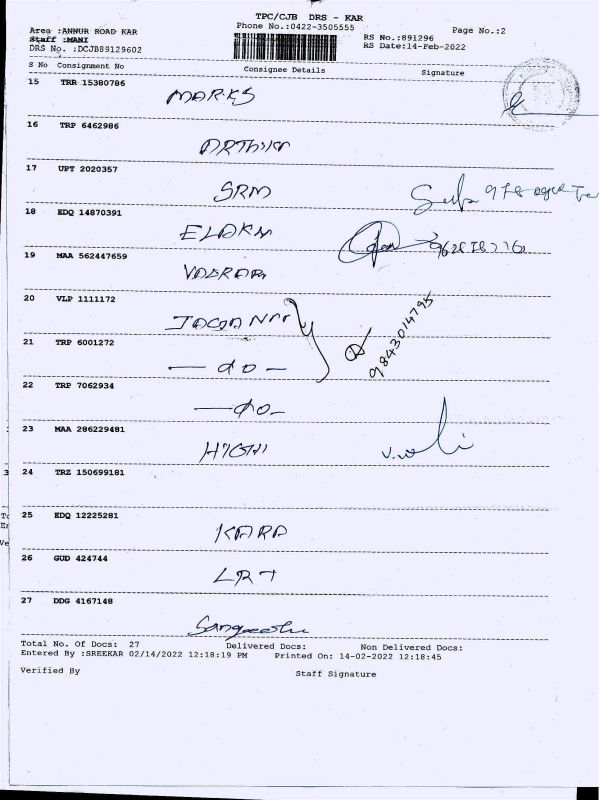 TPC/CJB DRS - KAR
Area :ANNUR ROAD KAR Phone No.:0422-3505555 Page No.:2
Staff :MANI RS No.:891296
DRS No. :DCJB89129602 RS Date:14-Feb-2022
S No Consignment No Consignee Details Signature
15 TRR 15380786
MARKS
16 TRP 6462986
17 UPT 2020357
SRM
18 EDQ 14870391
ELAKM
19 MAA 562447659
20 VLP 1111172
9843014795
21 TRP 6001272
— do —
22 TRP 7062934
— do —
23 MAA 286229481
24 TRZ 150699181
25 EDQ 12225281
KARA
26 GUD 424744
LRT
27 DDG 4167148
Total No. Of Docs: 27 Delivered Docs: Non Delivered Docs:
Entered By :SREEKAR 02/14/2022 12:18:19 PM Printed On: 14-02-2022 12:18:45
Verified By Staff Signature